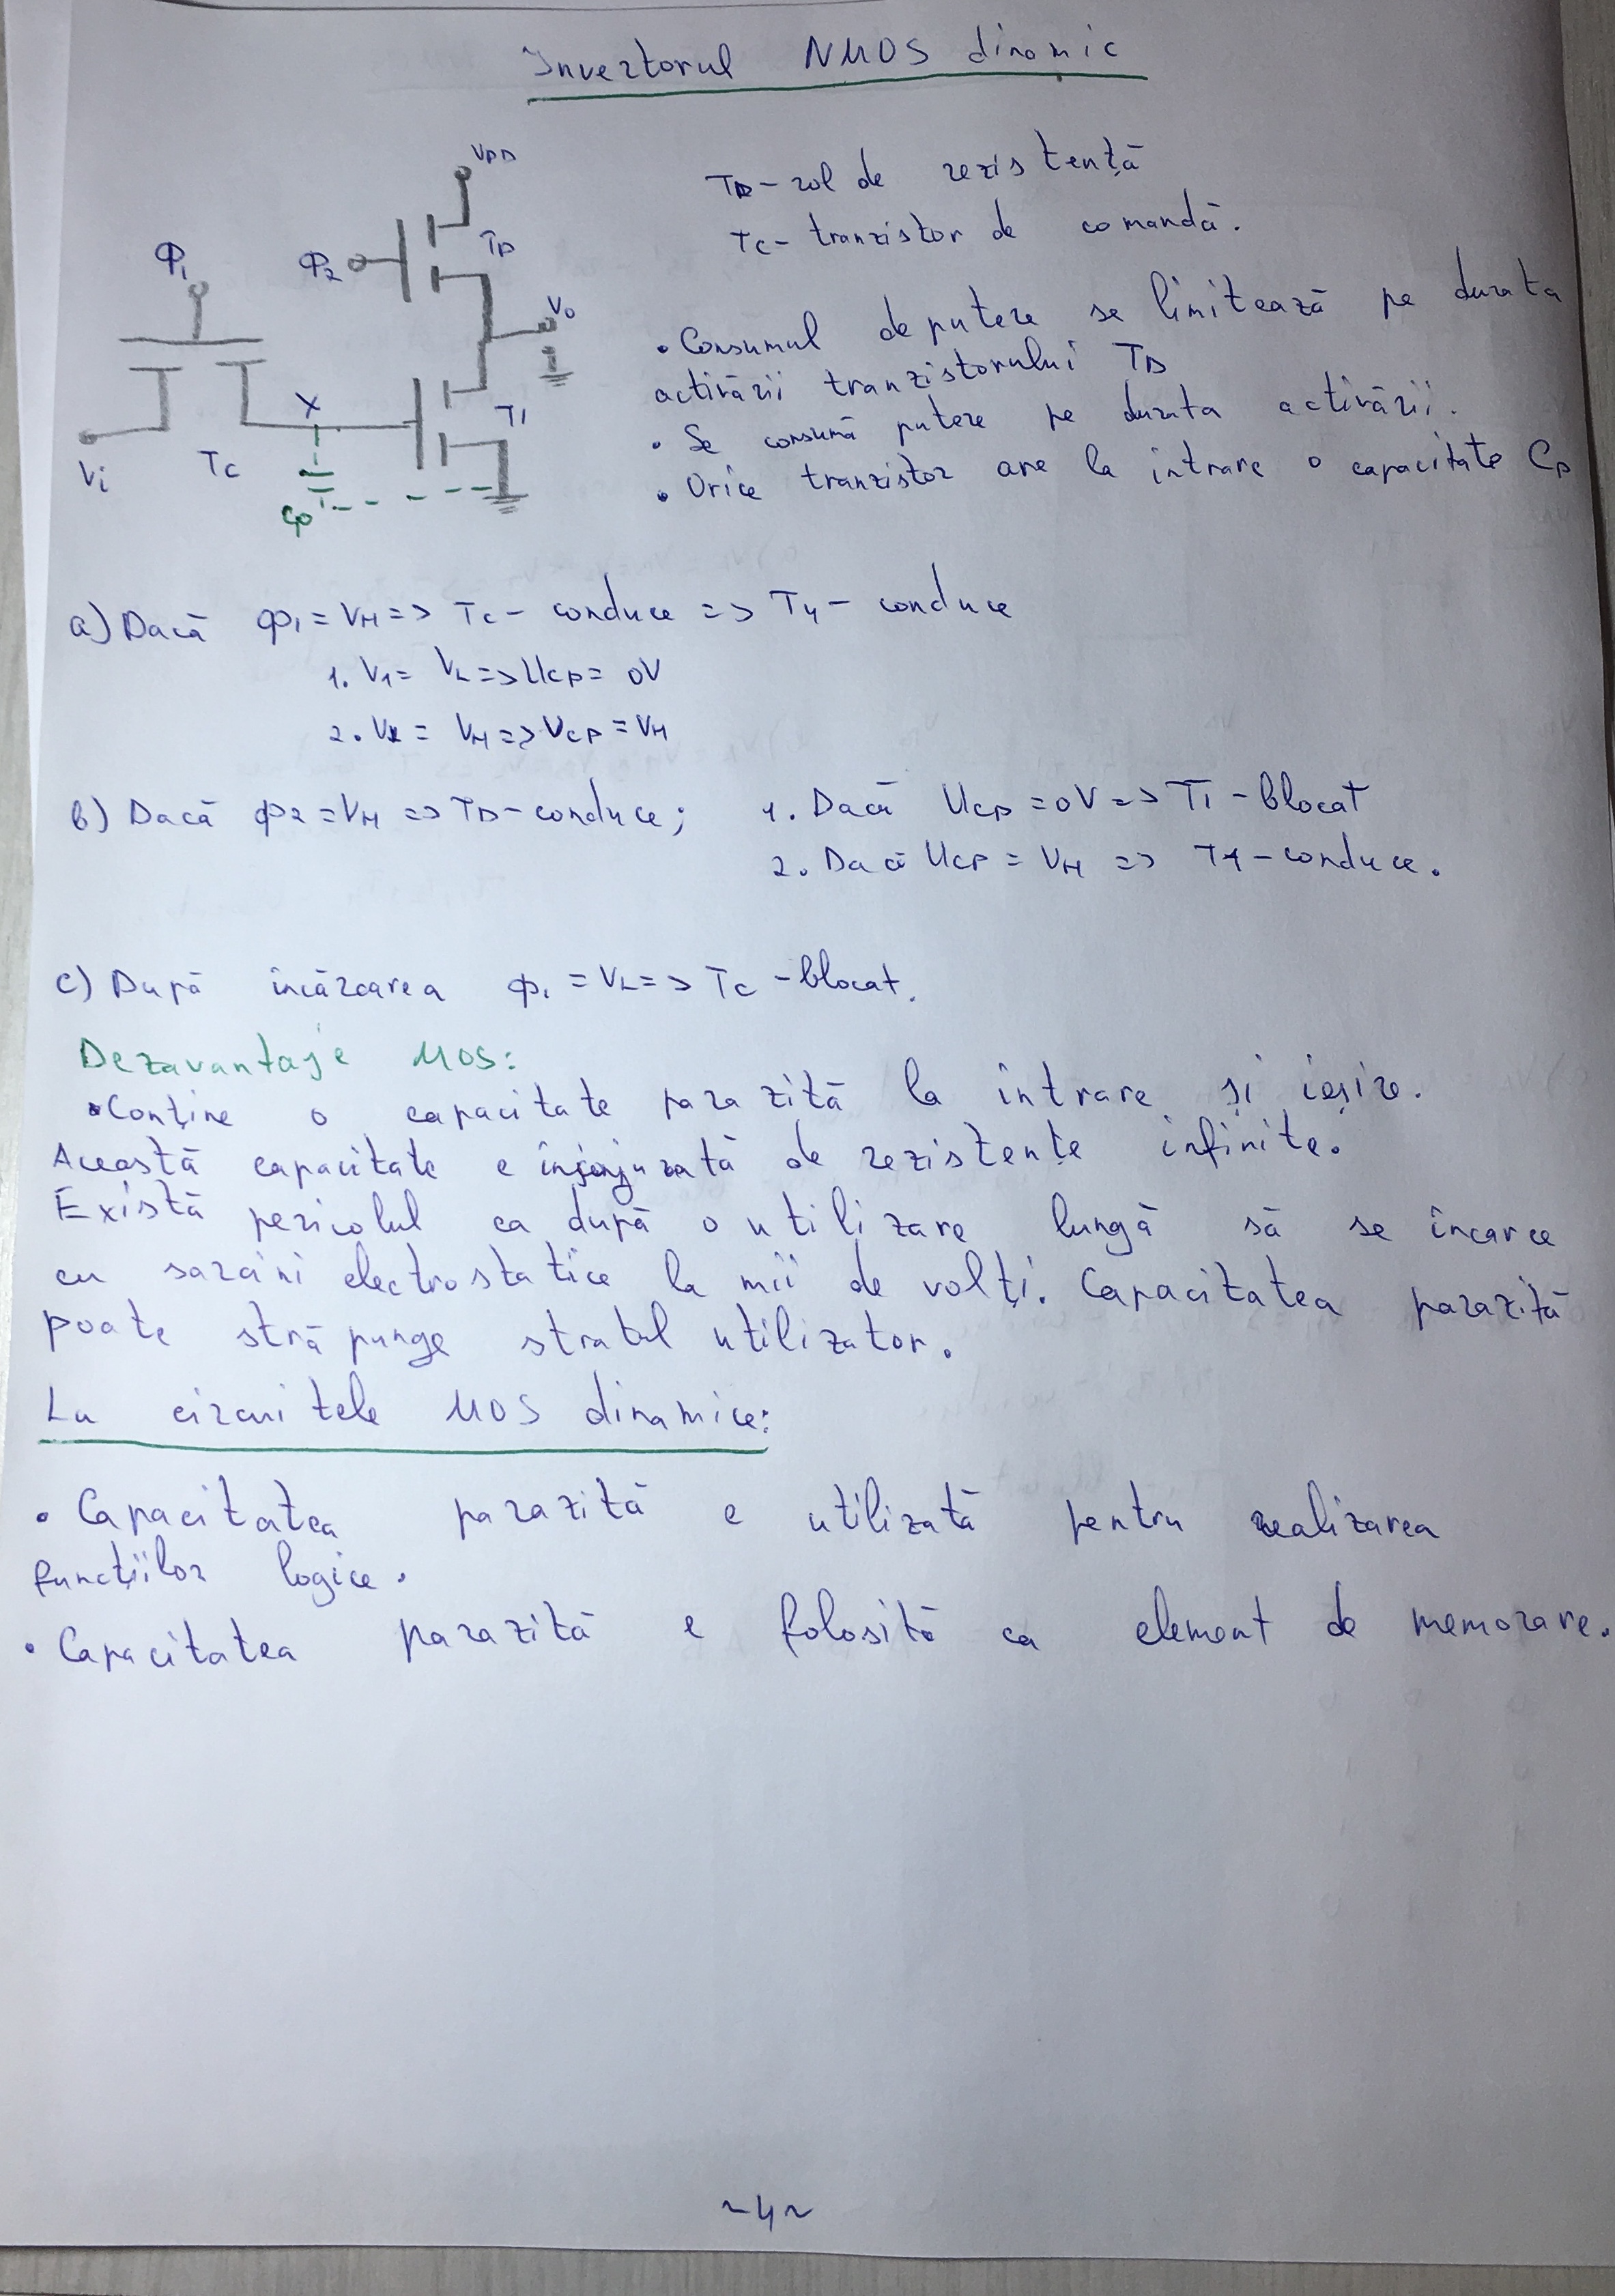 Invertorul NMOS dinamic
VDD
TD - rol de rezistență
TC - tranzistor de comandă.
Φ1
Φ2
TD
V0
• Consumul de putere se limitează pe durata
activării tranzistorului TD
X
T1
• Se consumă putere pe durata activării.
Vi
TC
• Orice tranzistor are la intrare o capacitate Cp
Cp
a) Dacă Φ1 = VH => TC - conduce => T1 - conduce
1. V1 = VL => UCP = 0V
2. = VH => VCP = VH
b) Dacă Φ2 = VH => TD - conduce; 1. Dacă UCP = 0V => T1 - blocat
2. Dacă UCP = VH => T1 - conduce.
c) După încărcarea Φ1 = VL => TC - blocat.
Dezavantaje MOS:
• Conține o capacitate parazită la intrare și ieșire.
Această capacitate e de rezistențe infinite.
Există pericolul ca după o utilizare lungă să se încarce
cu sarcini electrostatice la mii de volți. Capacitatea parazită
poate străpunge stratul utilizator.
La circuitele MOS dinamice:
• Capacitatea parazită e utilizată pentru realizarea
funcțiilor logice.
• Capacitatea parazită e folosită ca element de memorare.
~4~